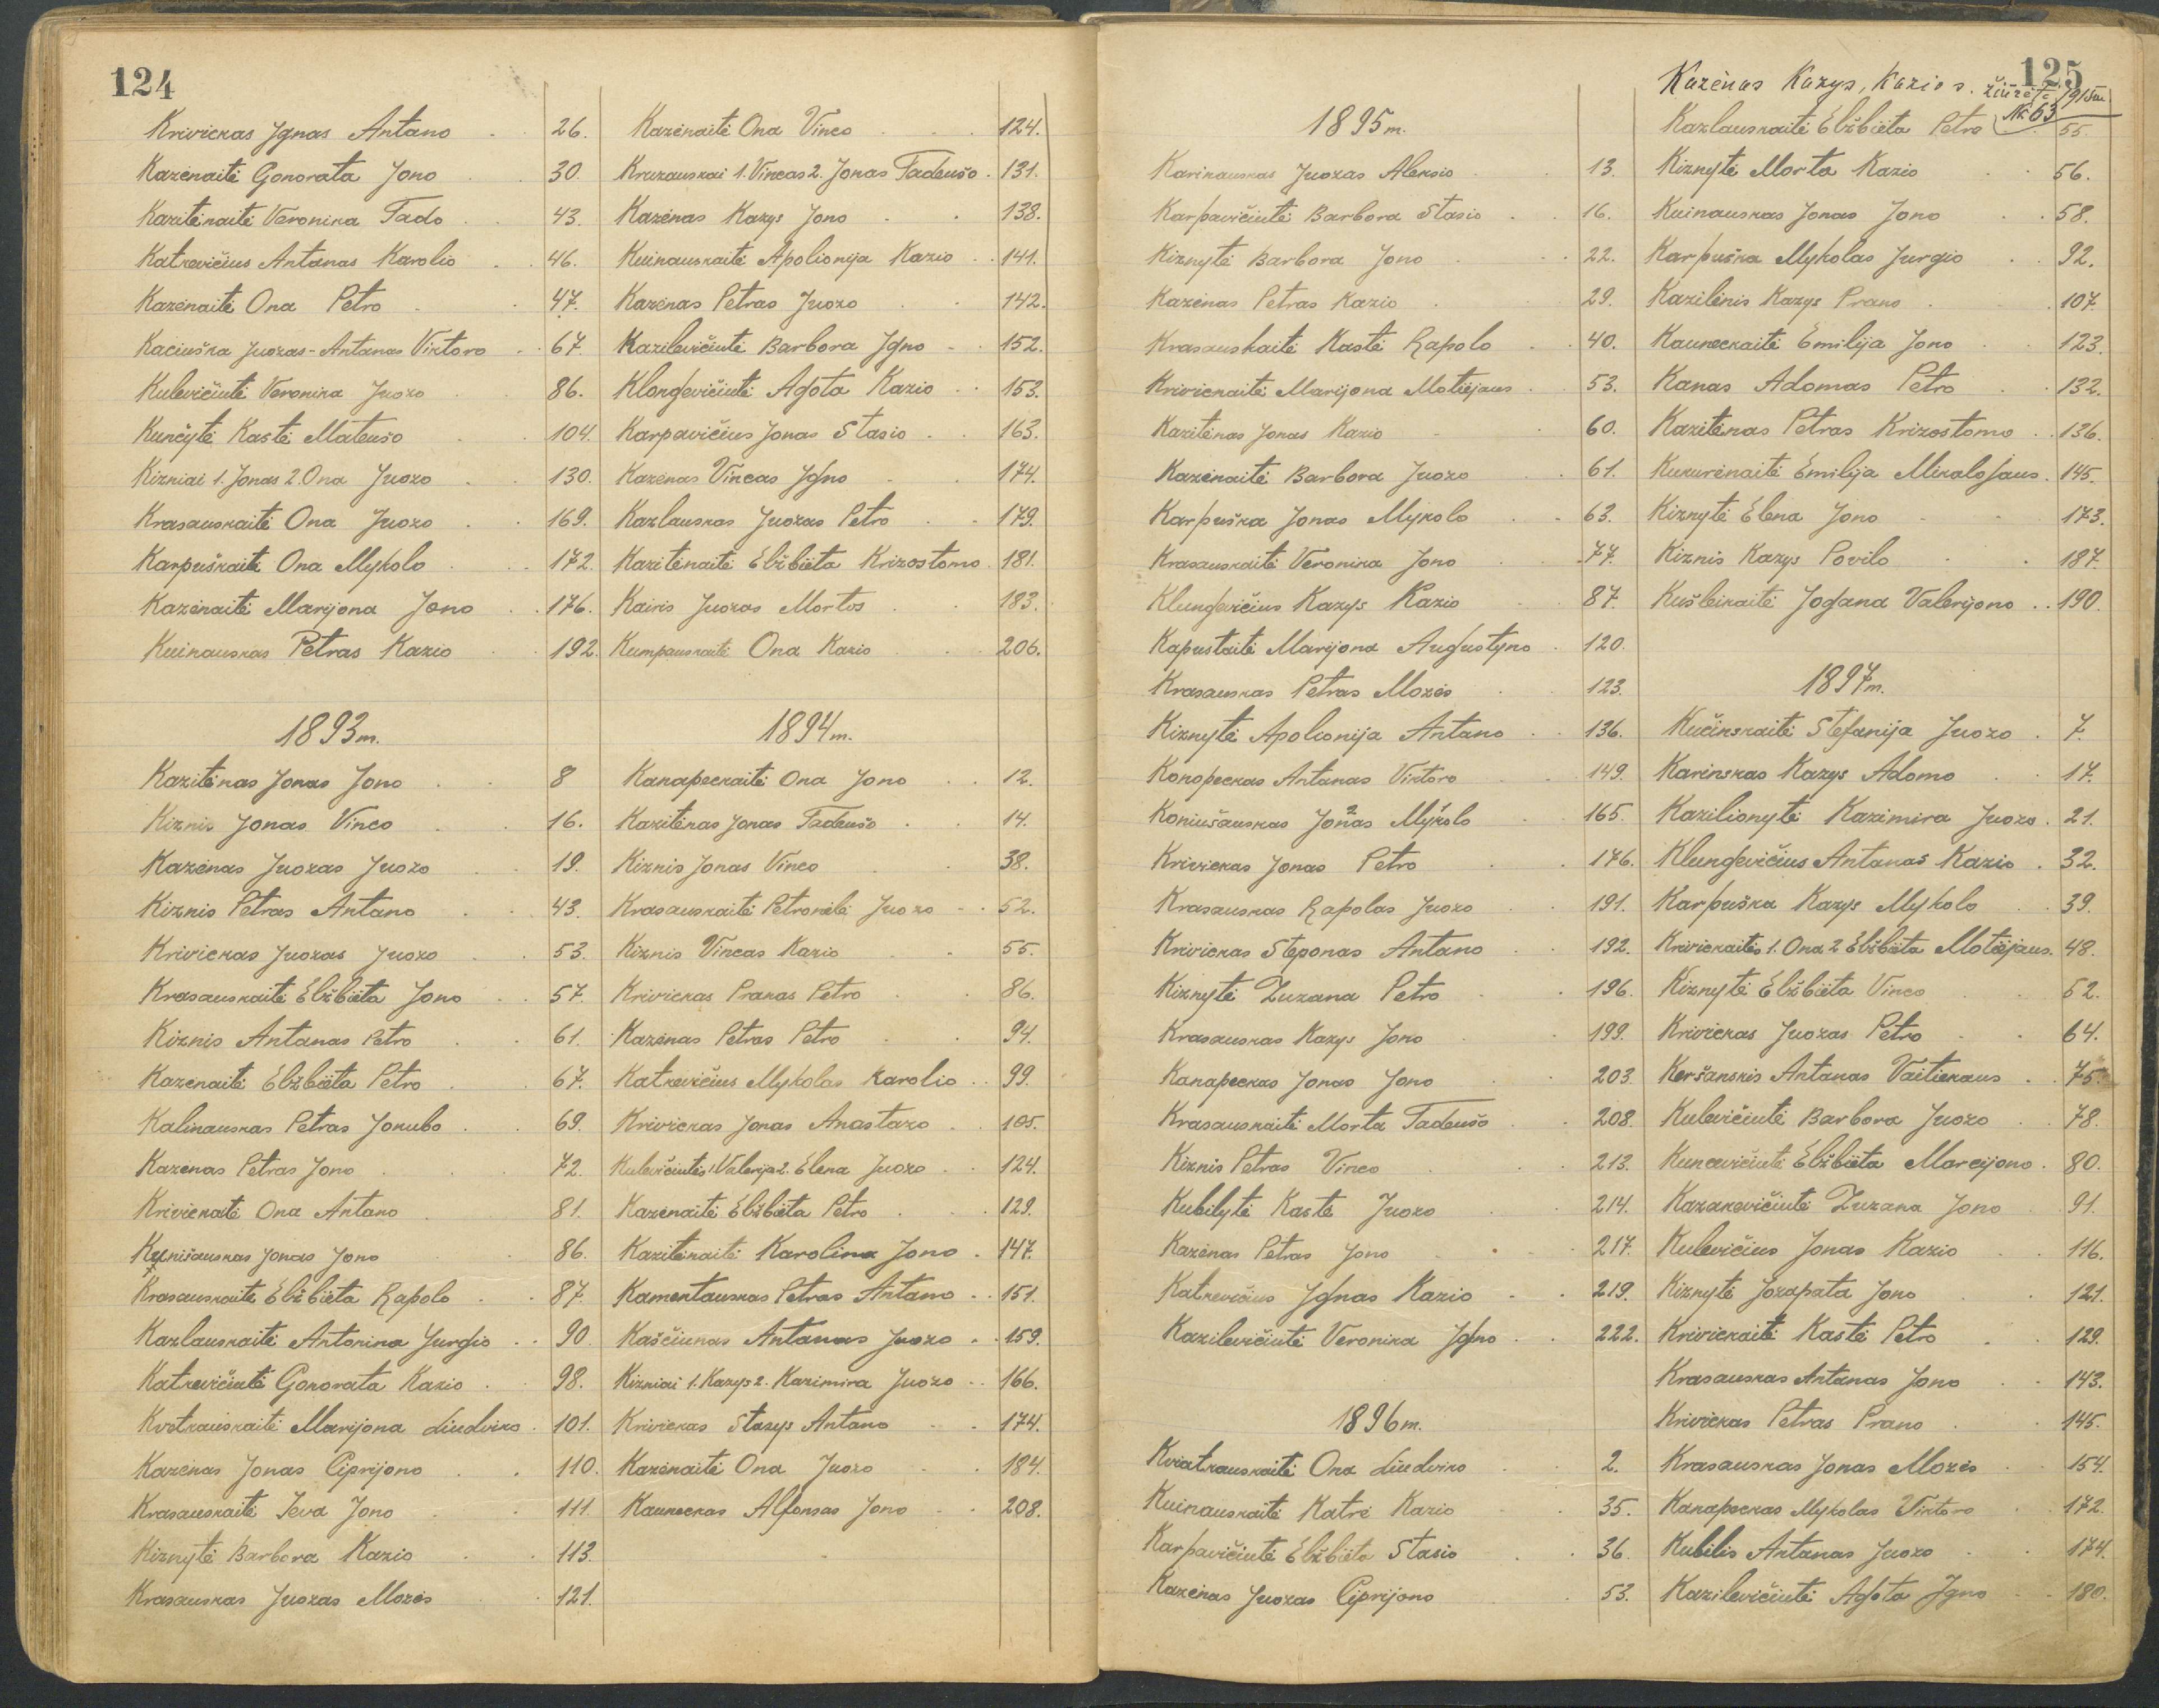 124
Krivickas Ignas Antano 26.
Kazėnaitė Gonorata Jono 30.
Kazitėnaitė Veronika Tado 43.
Katkevičius Antanas Karolio 46.
Kazėnaitė Ona Petro 47.
Kaciuška Juozas-Antanas Viktoro 67.
Kulevičiutė Veronika Juozo 86.
Kunčytė Kastė Mateušo 104.
Kizniai 1. Jonas 2. Ona Juozo 130.
Krasauskaitė Ona Juozo 169.
Karpuškaitė Ona Mykolo 172.
Kazėnaitė Marijona Jono 176.
Kuinauskas Petras Kazio 192.
1893 m.
Kazitėnas Jonas Jono 8
Kiznis Jonas Vinco 16.
Kazėnas Juozas Juozo 19.
Kiznis Petras Antano 43.
Krivickas Juozas Juozo 53.
Krasauskaitė Elžbieta Jono 57.
Kiznis Antanas Petro 61.
Kazėnaitė Elžbieta Petro 67.
Kalinauskas Petras Jokubo 69.
Kazėnas Petras Jono 72.
Krivickaitė Ona Antano 81.
Kunišauskas Jonas Jono 86.
Krasauskaitė Elžbieta Rapolo 87.
Kazlauskaitė Antonina Jurgio 90.
Katkevičiutė Gonorata Kazio 98.
Kvetkauskaitė Marijona Liudviko 101.
Kazėnas Jonas Ciprijono 110.
Krasauskaitė Ieva Jono 111.
Kiznytė Barbora Kazio 113.
Krasauskas Juozas Mozės 121.
Kazėnaitė Ona Vinco 124.
Kruzauskai 1. Vincas 2. Jonas Tadeušo 131.
Kazėnas Kazys Jono 138.
Kuinauskaitė Apolionija Kazio 141.
Kazėnas Petras Juozo 142.
Kazilevičiutė Barbora Igno 152.
Klongevičiutė Agota Kazio 153.
Karpavičius Jonas Stasio 163.
Kazėnas Vincas Igno 174.
Kazlauskas Juozas Petro 179.
Kazitėnaitė Elžbieta Krizostomo 181.
Kairis Juozas Mortos 183.
Kumpauskaitė Ona Kazio 206.
1894 m.
Kanapeckaitė Ona Jono 12.
Kazitėnas Jonas Tadeušo 14.
Kiznis Jonas Vinco 38.
Krasauskaitė Petronėlė Juozo 52.
Kiznis Vincas Kazio 55.
Krivickas Pranas Petro 86.
Kazėnas Petras Petro 94.
Katkevičius Mykolas Karolio 99.
Krivickas Jonas Anastazo 105.
Kulevičiutės 1. Valerija 2. Elena Juozo 124.
Kazėnaitė Elžbieta Petro 129.
Kazitėnaitė Karolina Jono 147.
Kamentauskas Petras Antano 151.
Kaščiunas Antanas Juozo 159.
Kizniai 1. Kazys 2. Kazimira Juozo 166.
Krivickas Stasys Antano 174.
Kazėnaitė Ona Juozo 184.
Kauneckas Alfonsas Jono 208.
1895 m.
Karinauskas Juozas Aleksio 13.
Karpavičiutė Barbora Stasio 16.
Kiznytė Barbora Jono 22.
Kazėnas Petras Kazio 29.
Krasauskaitė Kastė Rapolo 40.
Krivickaitė Marijona Motiejaus 53.
Kazitėnas Jonas Kazio 60.
Kazėnaitė Barbora Juozo 61.
Karpuška Jonas Mykolo 63.
Krasauskaitė Veronika Jono 77.
Klungevičius Kazys Kazio 87.
Kapustaitė Marijona Augustyno 120.
Krasauskas Petras Mozės 123.
Kiznytė Apolionija Antano 136.
Konopeckas Antanas Viktoro 149.
Koniušauskas Jonas 2 Mykolo 165.
Krivickas Jonas Petro 176.
Krasauskas Rapolas Juozo 191.
Krivickas Steponas Antano 192.
Kiznytė Zuzana Petro 196.
Krasauskas Kazys Jono 199.
Kanapeckas Jonas Jono 203.
Krasauskaitė Morta Tadeušo 208.
Kiznis Petras Vinco 213.
Kubilytė Kastė Juozo 214.
Kazėnas Petras Jono 217.
Katkevičius Ignas Kazio 219.
Kazilevičiutė Veronika Igno 222.
1896 m.
Kviatkauskaitė Ona Liudviko 2.
Kuinauskaitė Katrė Kazio 35.
Karpavičiutė Elžbieta Stasio 36.
Kazėnas Juozas Ciprijono 53.
125
Kazėnas Kazys, Kazio s. žiūrėti 1915 m. № 63
Kazlauskaitė Elžbieta Petro 55.
Kiznytė Morta Kazio 56.
Kuinauskas Jonas Jono 58.
Karpuška Mykolas Jurgio 92.
Kazilėnis Kazys Prano 107.
Kauneckaitė Emilija Jono 123.
Kanas Adomas Petro 132.
Kazitėnas Petras Krizostomo 136.
Kukurėnaitė Emilija Mikalojaus 145.
Kiznytė Elena Jono 173.
Kiznis Kazys Povilo 187.
Kušleikaitė Jogana Valerijono 190.
1897 m.
Kučinskaitė Stefanija Juozo 7.
Karinskas Kazys Adomo 17.
Kazilionytė Kazimira Juozo 21.
Klungevičius Antanas Kazio 32.
Karpuška Kazys Mykolo 39.
Krivickaitės 1. Ona 2 Elžbieta Motiejaus 48.
Kiznytė Elžbieta Vinco 52.
Krivickas Juozas Petro 64.
Keršanskis Antanas Vaitiekaus 75.
Kulevičiutė Barbora Juozo 78.
Kuncevičiutė Elžbieta Marcijono 80.
Kazakevičiutė Zuzana Jono 91.
Kulevičius Jonas Kazio 116.
Kiznytė Jozapata Jono 121.
Krivickaitė Kastė Petro 129.
Krasauskas Antanas Jono 143.
Krivickas Petras Prano 145.
Krasauskas Jonas Mozės 154.
Kanapeckas Mykolas Viktoro 172.
Kubilis Antanas Juozo 174.
Kazilevičiutė Agota Igno 180.